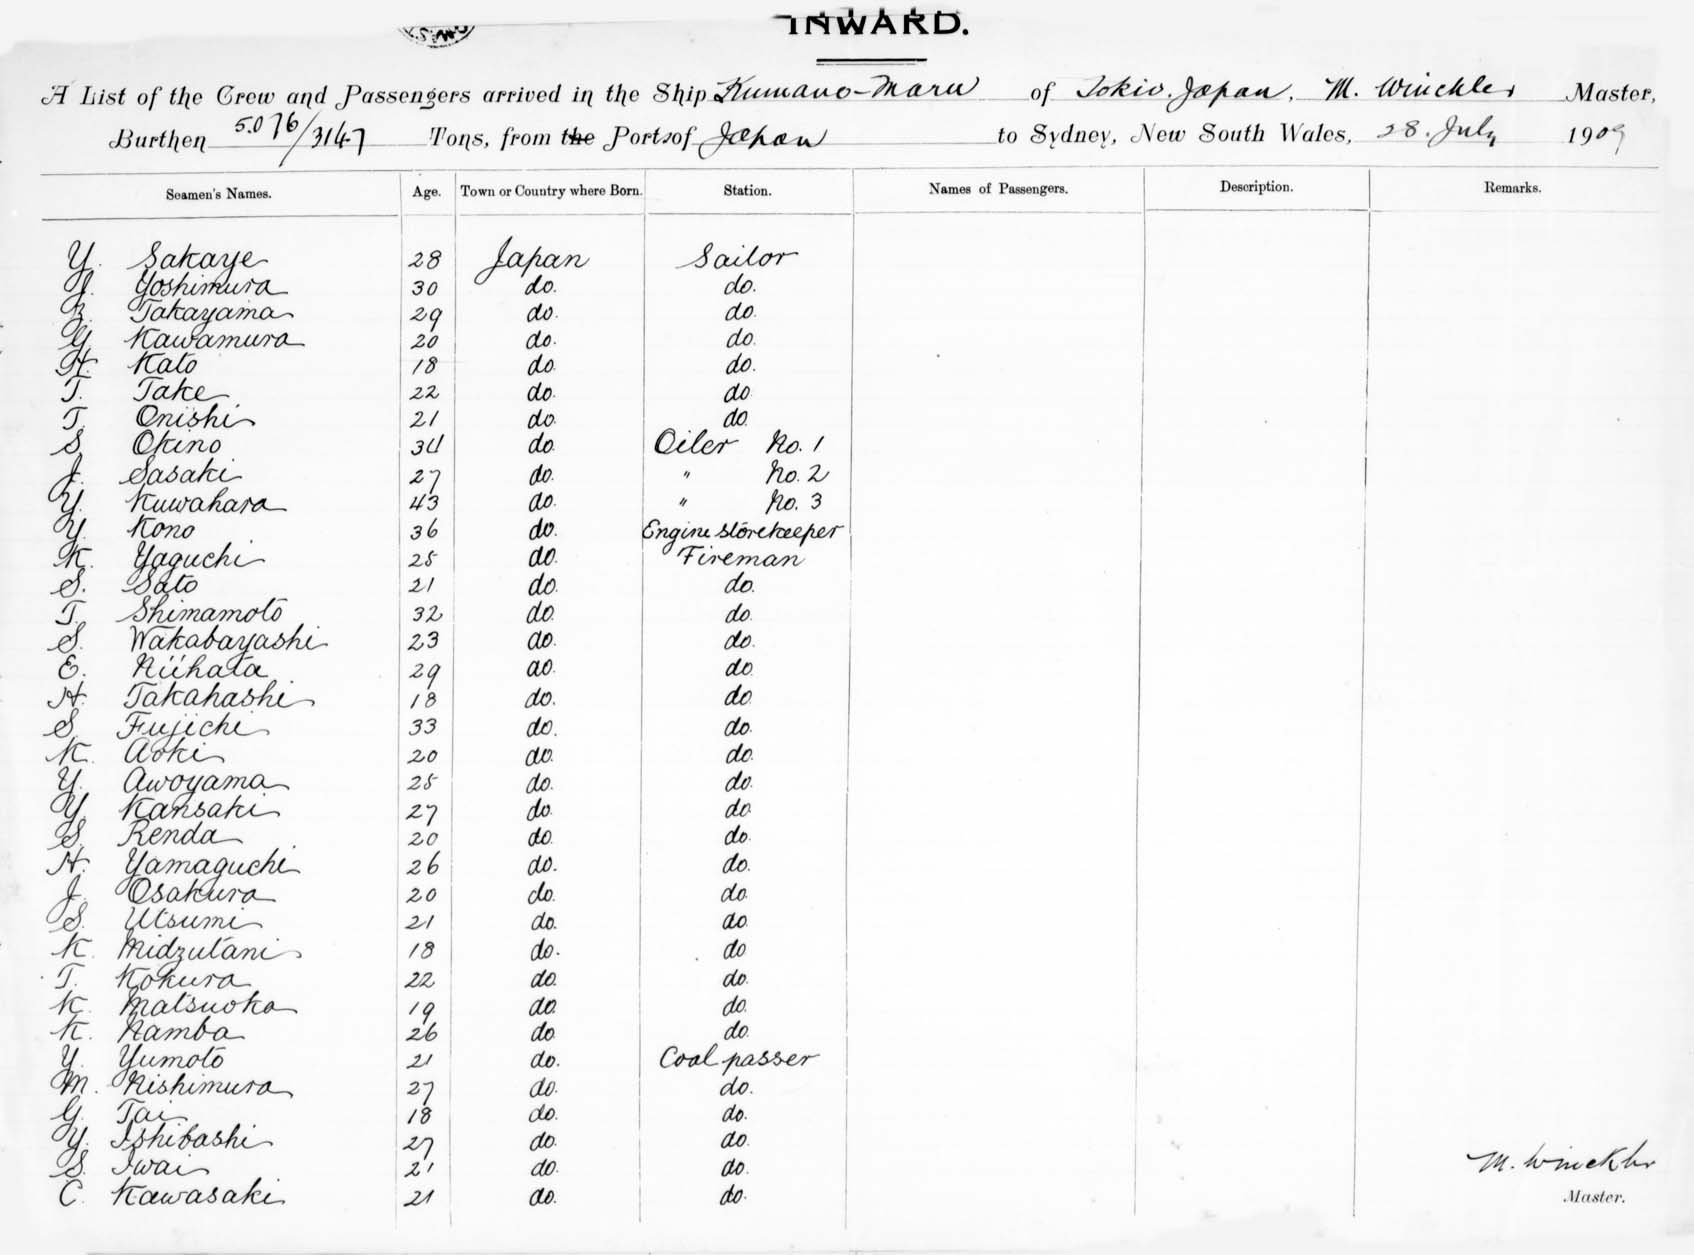 INWARD.
A List of the Crew and Passengers arrived in the Ship Kumano-Maru of Tokio. Japan, M. Winckler Master,
Burthen 5.076/3147 Tons, from the Ports of Japan to Sydney, New South Wales, 28. July 1909
Seamen's Names. Age. Town or Country where Born. Station. Names of Passengers. Description. Remarks.
Y. Sakaye 28 Japan Sailor
Yoshimura 30 do. do.
Takayama 29 do. do.
G. Kawamura 20 do. do.
H. Kato 18 do. do.
T. Take 22 do. do
T. Onishi 21 do. do.
S. Okino 34 do. Oiler No. 1
J. Sasaki 27 do. " No. 2
Y. Kuwahara 43 do. " No. 3
Y. Kono 36 do. Engine storekeeper
K. Yaguchi 25 do. Fireman
S. Sato 21 do. do.
T. Shimamoto 32 do. do.
S. Wakabayashi 23 do. do.
E. Niihata 29 do. do.
H. Takahashi 18 do. do.
S. Fujichi 33 do. do.
K. Aoki 20 do. do.
Y. Awoyama 25 do. do.
Y. Kansaki 27 do. do.
S. Renda 20 do. do.
H. Yamaguchi 26 do. do.
J. Osakura 20 do. do.
S. Utsumi 21 do. do.
K. Midzutani 18 do. do
T. Kokura 22 do. do.
K. Matsuoka 19 do. do.
K. Namba 26 do. do.
Y. Yumoto 21 do. Coal passer
M. Nishimura 27 do. do.
G. Tai 18 do. do.
Y. Ishibashi 27 do. do.
S. Iwai 21 do. do.
C. Kawasaki 21 do. do.
M. Winckler
Master.